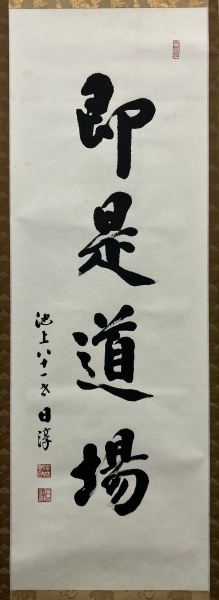 即是道場
池上八十一才日淳